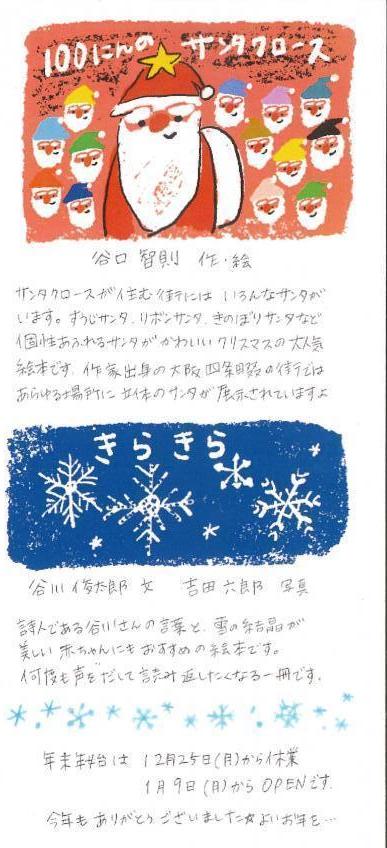 100にんの サンタクロース
谷口 智則 作・絵
サンタクロースが住む街には いろんなサンタが
います。すうじサンタ、リボンサンタ、きのぼりサンタなど
個性あふれるサンタが かわいい クリスマスの大人気
絵本です。作家出身の大阪 四条畷の街では
あらゆる場所に 立体のサンタが 展示されていますよ
きらきら
谷川 俊太郎 文 吉田 六郎 写真
詩人である谷川さんの言葉と、雪の結晶が
美しい 赤ちゃんにもおすすめの絵本です。
何度も声をだして読み返したくなる一冊です。
年末年始は 12月25日(月)から休業
1月9日(月)から OPENです。
今年も ありがとうございました☆よいお年を…